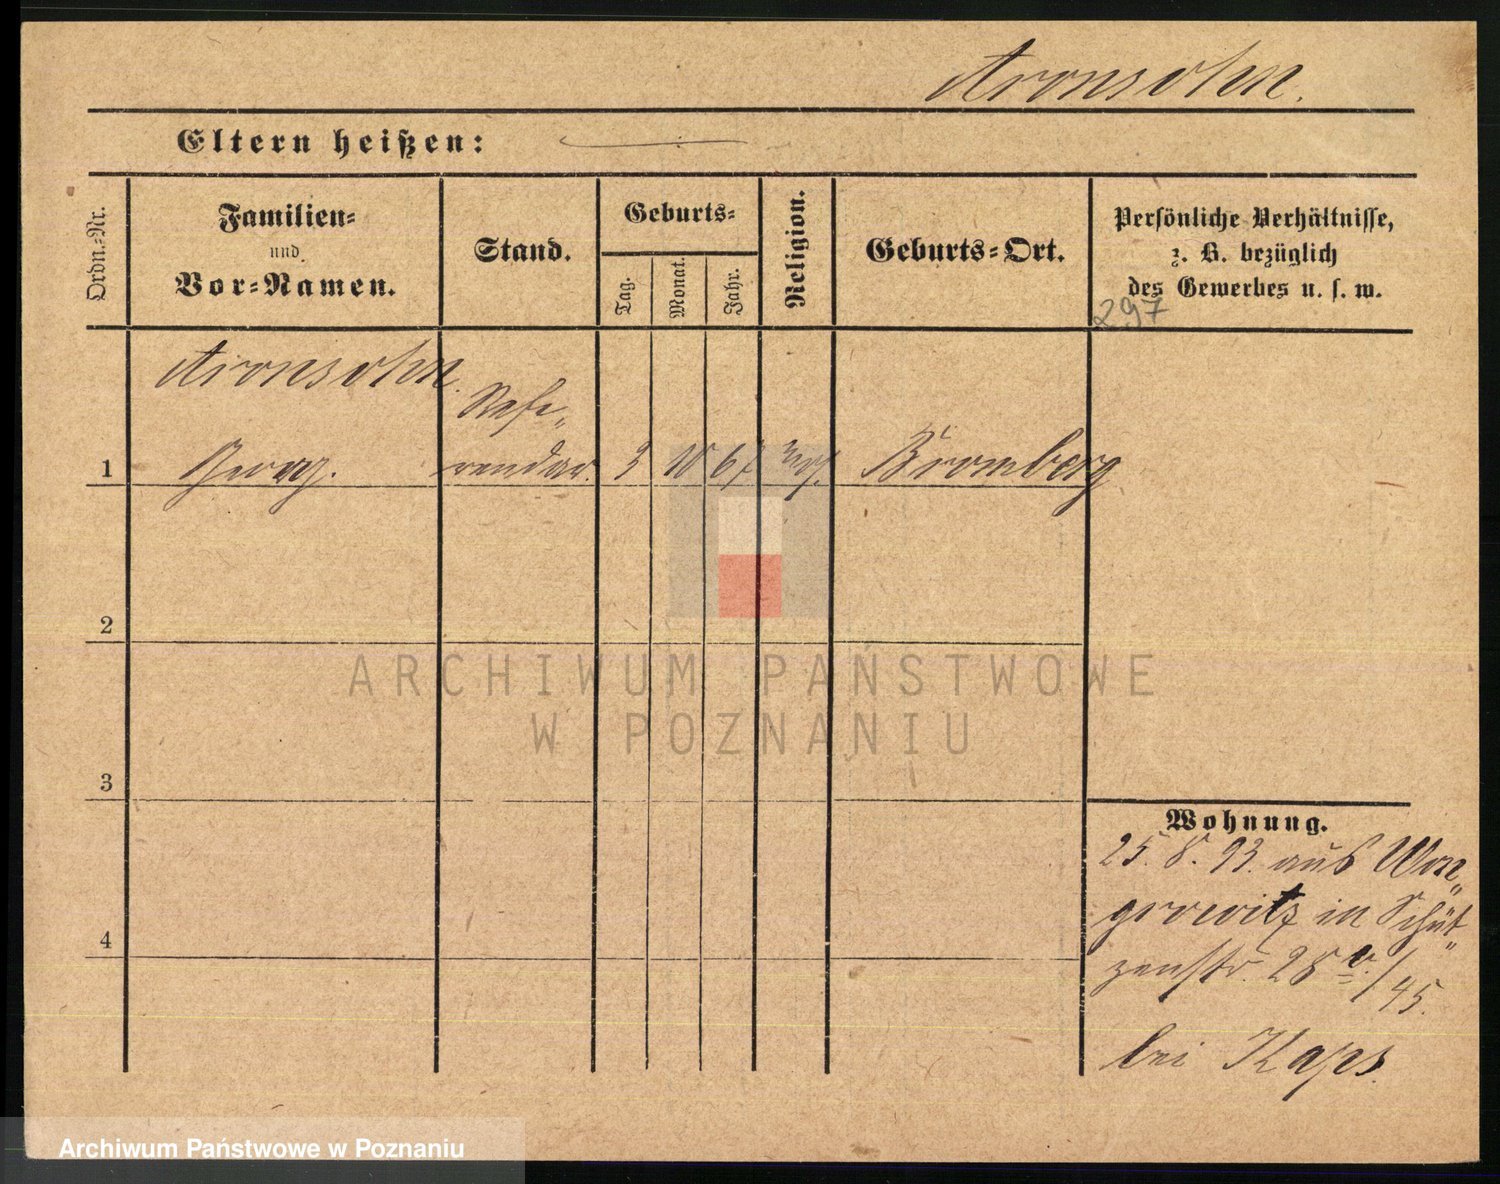 Aronsohn.
Eltern heißen:
Ordn.=Nr.
Familien=
und
Vor=Namen.
Stand.
Geburts=
Tag.
Monat.
Jahr.
Religion.
Geburts=Ort.
Persönliche Verhältnisse,
z. B. bezüglich
des Gewerbes u. s. w.
297
Aronsohn.
Refe„
1 Georg. rendar. 3 10 67 mos. Bromberg
2
ARCHIWUM PAŃSTWOWE
W POZNANIU
3
Wohnung.
25. 8. 93. aus Won„
growitz in Schüt„
4
zenstr. 28 /45.
bei Kaps.
Archiwum Państwowe w Poznaniu